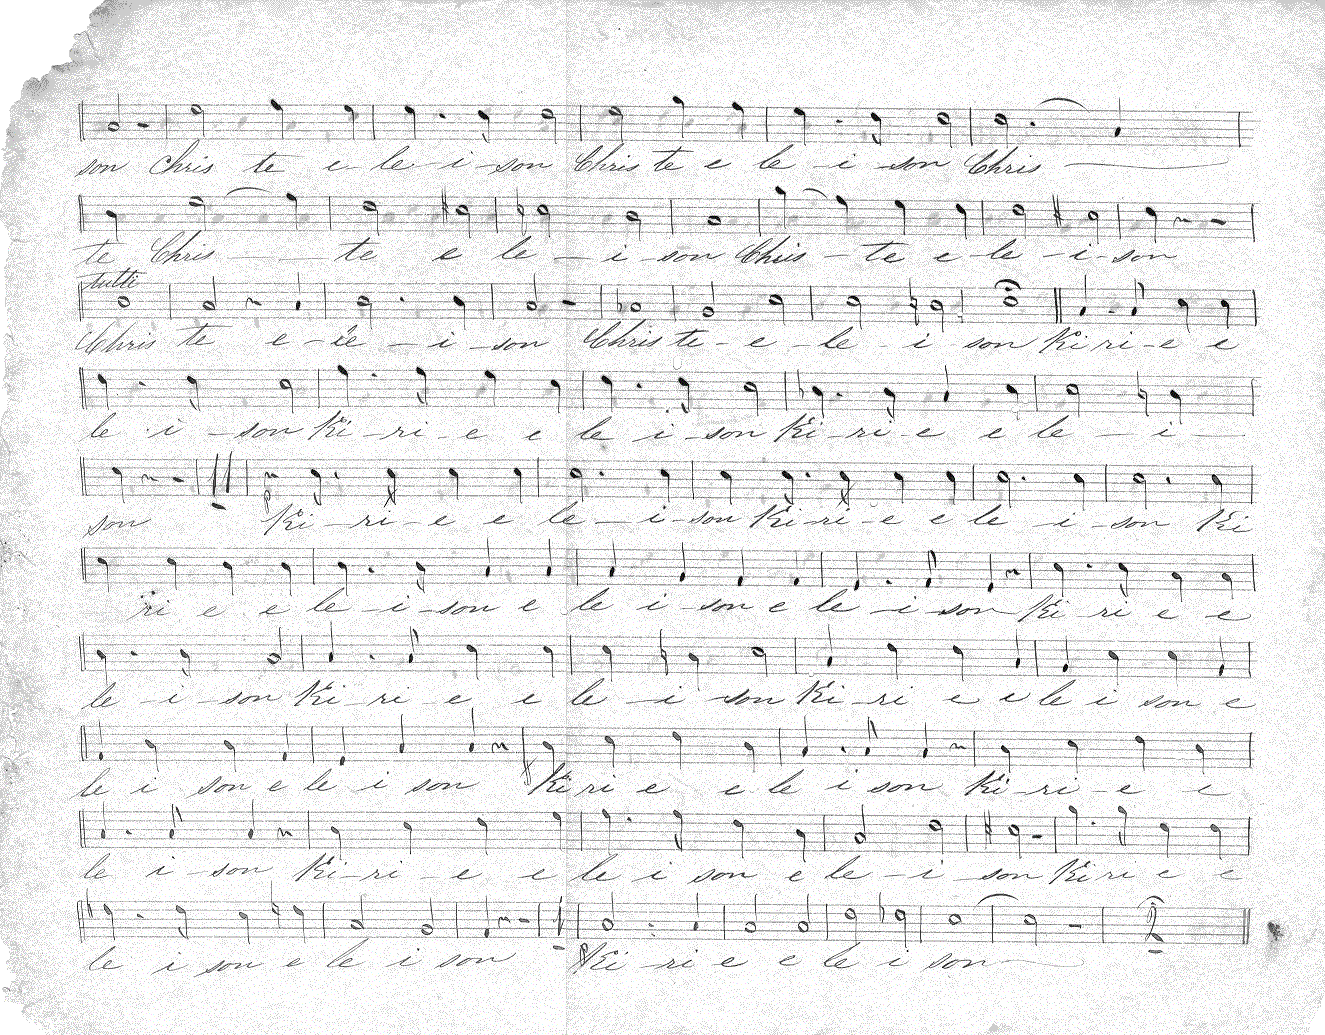 son Chris te e le i son Chris te e le i son Chris
te Chris te e le i son Chris te e le i son
tutti
Chris te e le i son Chris te e le i son Ki ri e e
le i son Ki ri e e le i son Ki ri e e le i
son Ki ri e e le i son Ki ri e e le i son Ki
ri e e le i son e le i son e le i son Ki ri e e
le i son Ki ri e e le i son Ki ri e e le i son e
le i son e le i son Ki ri e e le i son Ki ri e e
le i son Ki ri e e le i son e le i son Ki ri e e
le i son e le i son Ki ri e e le i son